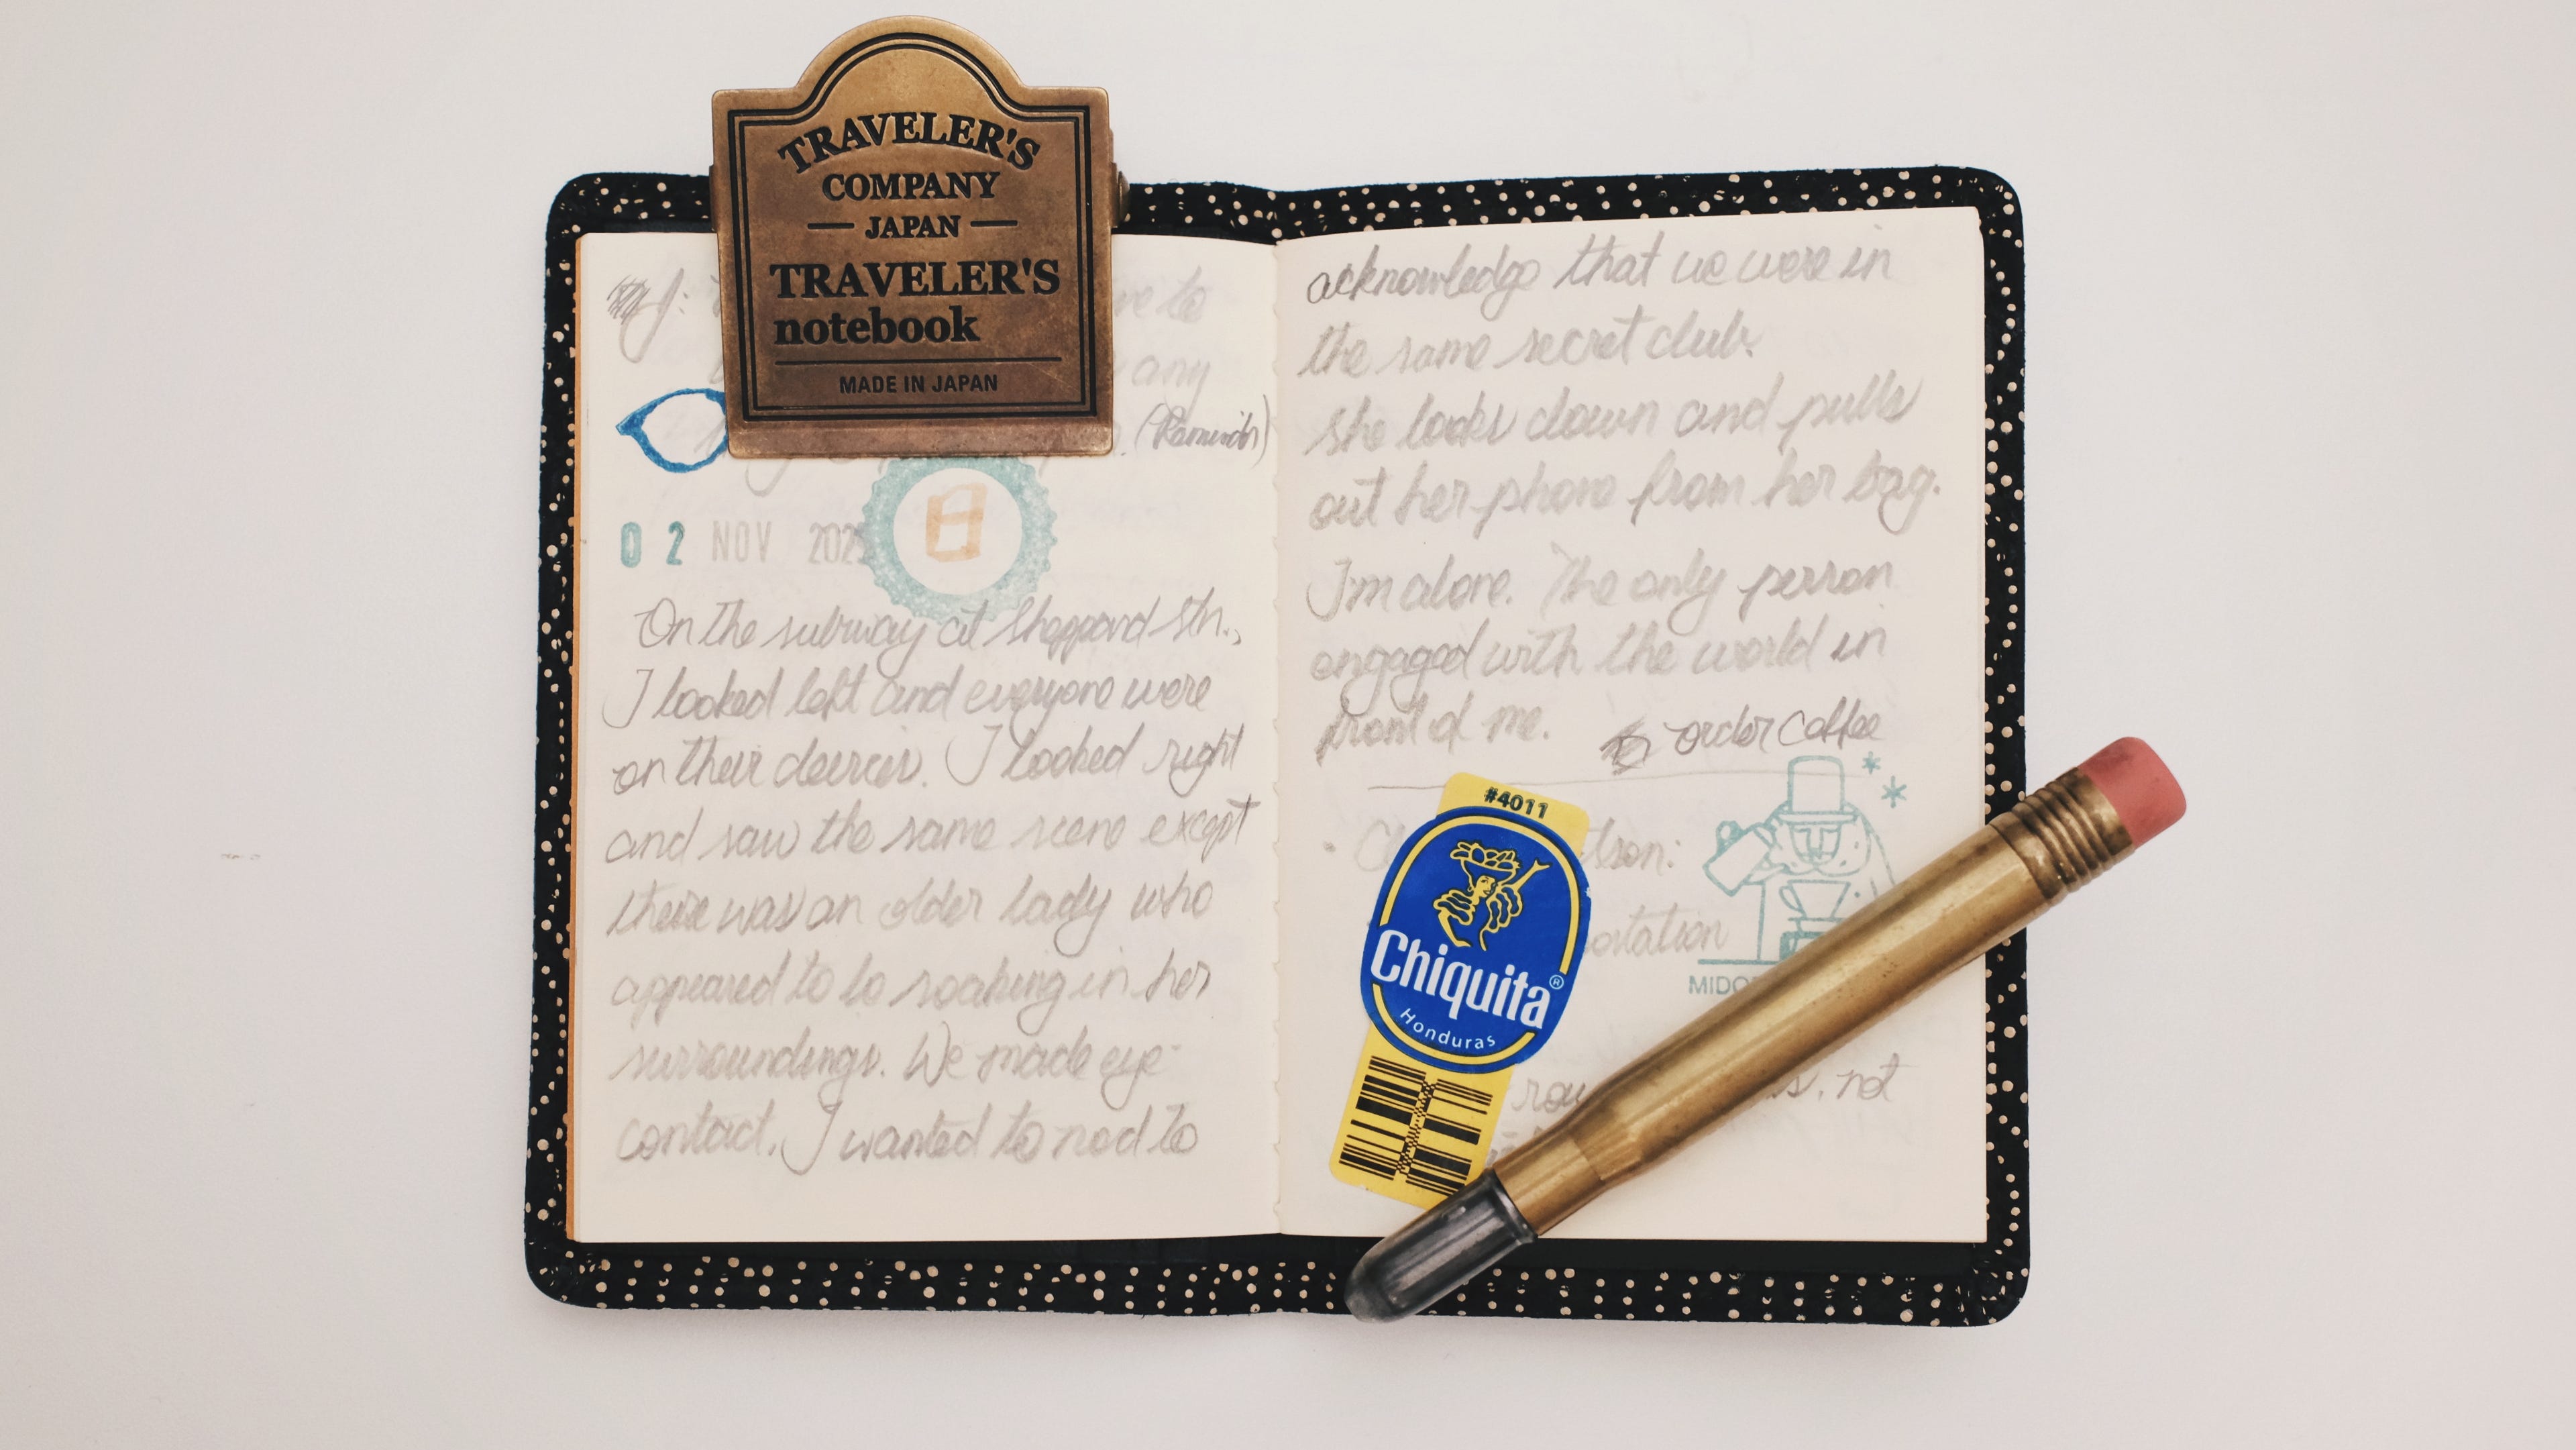 TRAVELER'S
COMPANY
JAPAN
TRAVELER'S
notebook
MADE IN JAPAN
ve to
any
02 NOV 202
日
On the subway at Sheppard Stn.,
I looked left and everyone were
on their devices. I looked right
and saw the same scene except
there was an older lady who
appeared to be soaking in her
surroundings. We made eye-
contact. I wanted to nod to
acknowledge that we were in
the same secret club.
She looks down and pulls
out her phone from her bag.
I'm alone. The only person
engaged with the world in
front of me.
order coffee
#4011
Chiquita®
Honduras
MIDO
not